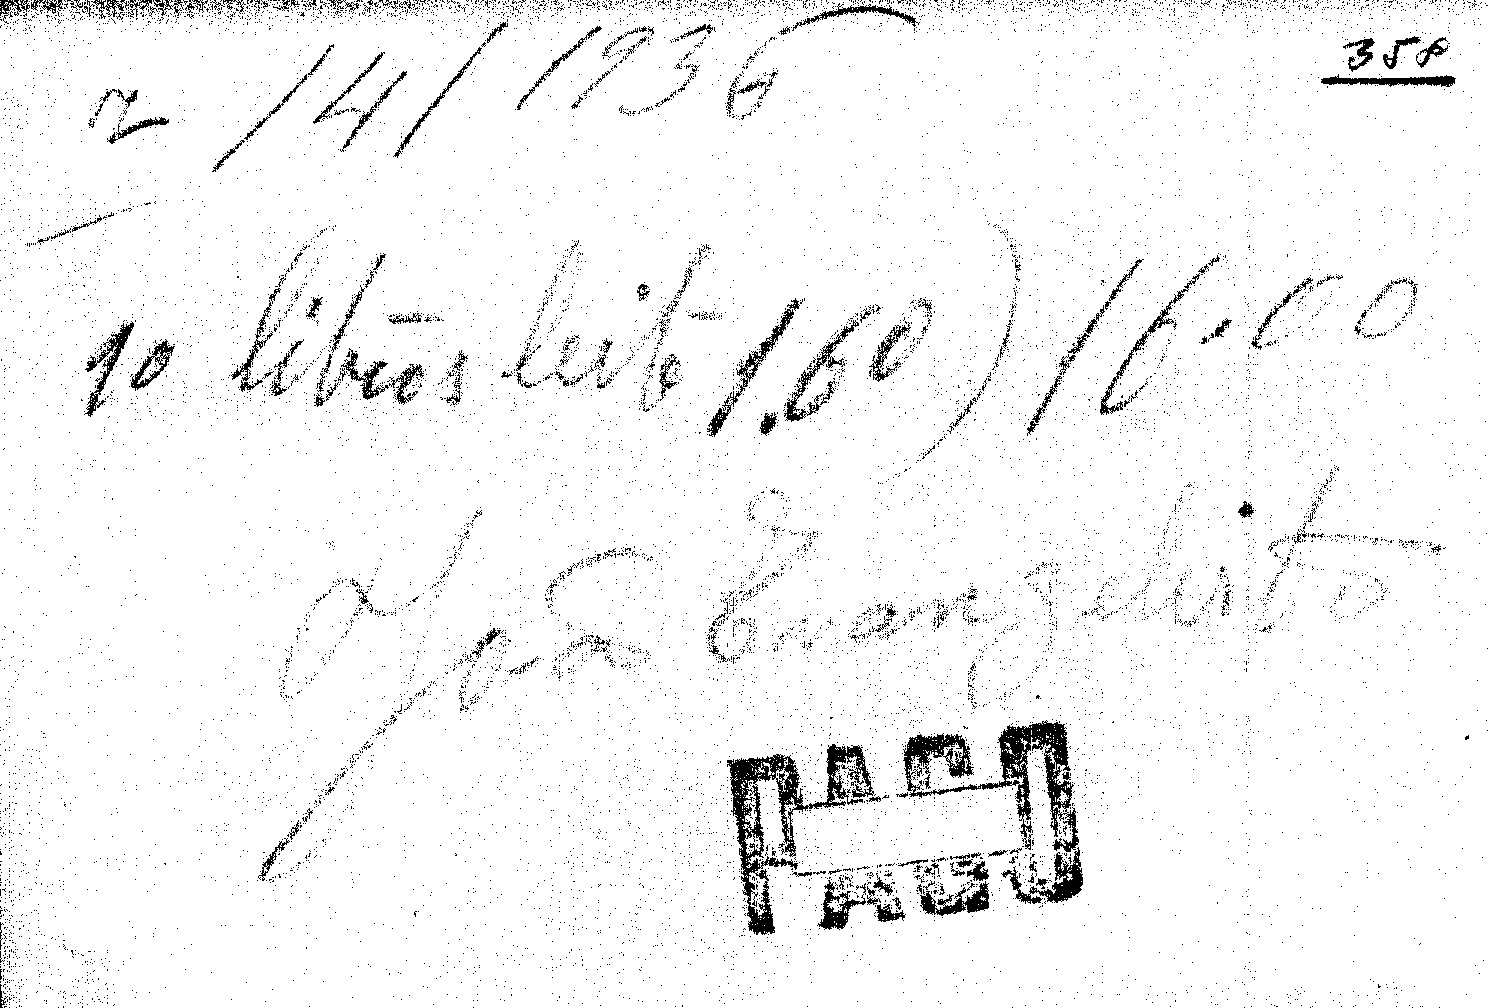 358
2/4/1936
10 litros leite 1.60) 16.00
João Evangelista
PAGO